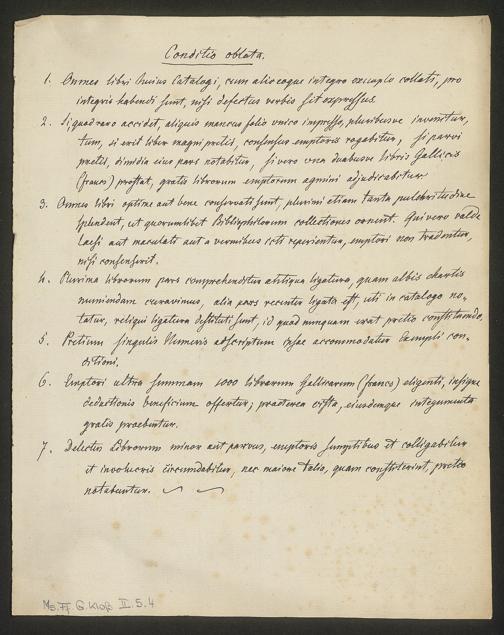 Conditio oblata.
1. Omnes libri huius Catalogi, cum alio eoque integro exemplo collati, pro
integris habendi sunt, nisi defectus verbis sit expressus.
2. Si quod raro accidet, aliquis mancus folio unico impresso, pluribusve invenitur,
tum, si erit liber magni pretii, consensus emptoris rogabitur, si parvi
pretii, dimidia eius pars notabitur, si vero una duabusve libris Gallicis
(francs) prostat, gratis librorum emptorum agmini adjudicabitur.
3. Omnes libri optime aut bene conservati sunt, plurimi etiam tanta pulchritudine
splendent, ut quorumlibet Bibliophilorum collectiones ornent. Qui vero valde
laesi aut maculati aut a vermibus reperientur, emptori non tradentur,
nisi consenserit.
4. Plurima librorum pars comprehenditur antiqua ligatura, quam albis chartis
muniendam curavimus, alia pars recenter ligata est, uti in catalogo no-
tatur, reliqui ligatura destituti sunt, id quod nunquam erat pretio constituendo.
5. Pretium singulis Numeris adscriptum ipsae accommodatur Exempli con-
ditioni.
6. Emptori ultro summam 1000 librarum Gallicarum (francs) eligenti, insigne
deductionis beneficium offertur; praeterea cista, eiusdemque integumenta
gratis praebentur.
7. Delectus Librorum minor aut parvus, emptoris sumptibus et colligabitur
et involucris circumdabitur, nec maiore talia, quam constiterint, pretio
notabuntur.
Ms. Ff. G. Kloß II. 5. 4